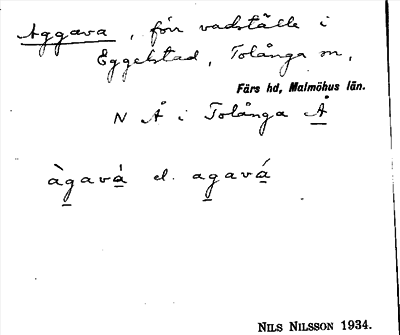 Aggava, förr vadställe i
Eggelstad, Tolånga sn,
Färs hd, Malmöhus län.
N Å i Tolånga Å
àgavá el. agavá
NILS NILSSON 1934.